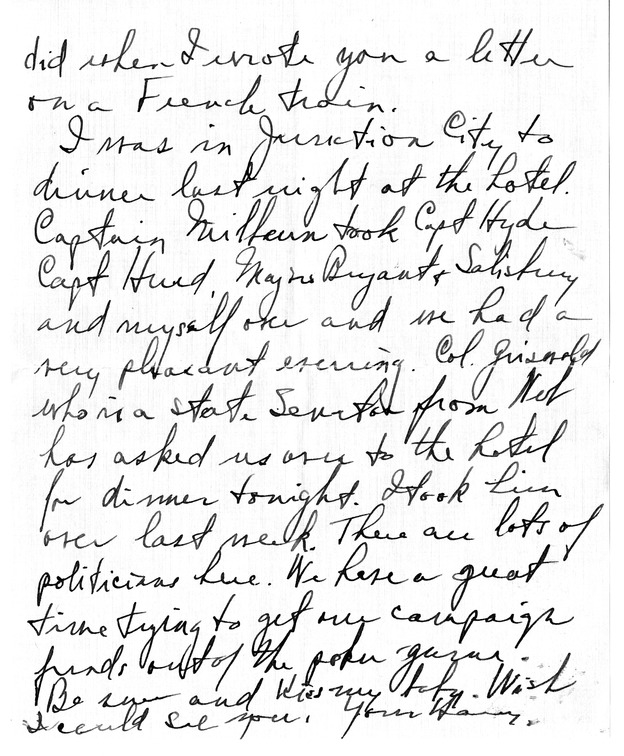 did when I wrote you a letter
on a French train.
I was in Junction City to
dinner last night at the hotel.
Captain Milburn took Capt Hyde
Capt Hurd, Majors Bryant & Salisbury
and myself over and we had a
very pleasant evening. Col. Griswold
who is a state Senator from Neb
has asked us over to the hotel
for dinner tonight. I took him
over last week. There are lots of
politicians here. We have a great
time trying to get our campaign
funds out of the poker game.
Be sure and kiss my baby. Wish
I could see you. Your Harry.